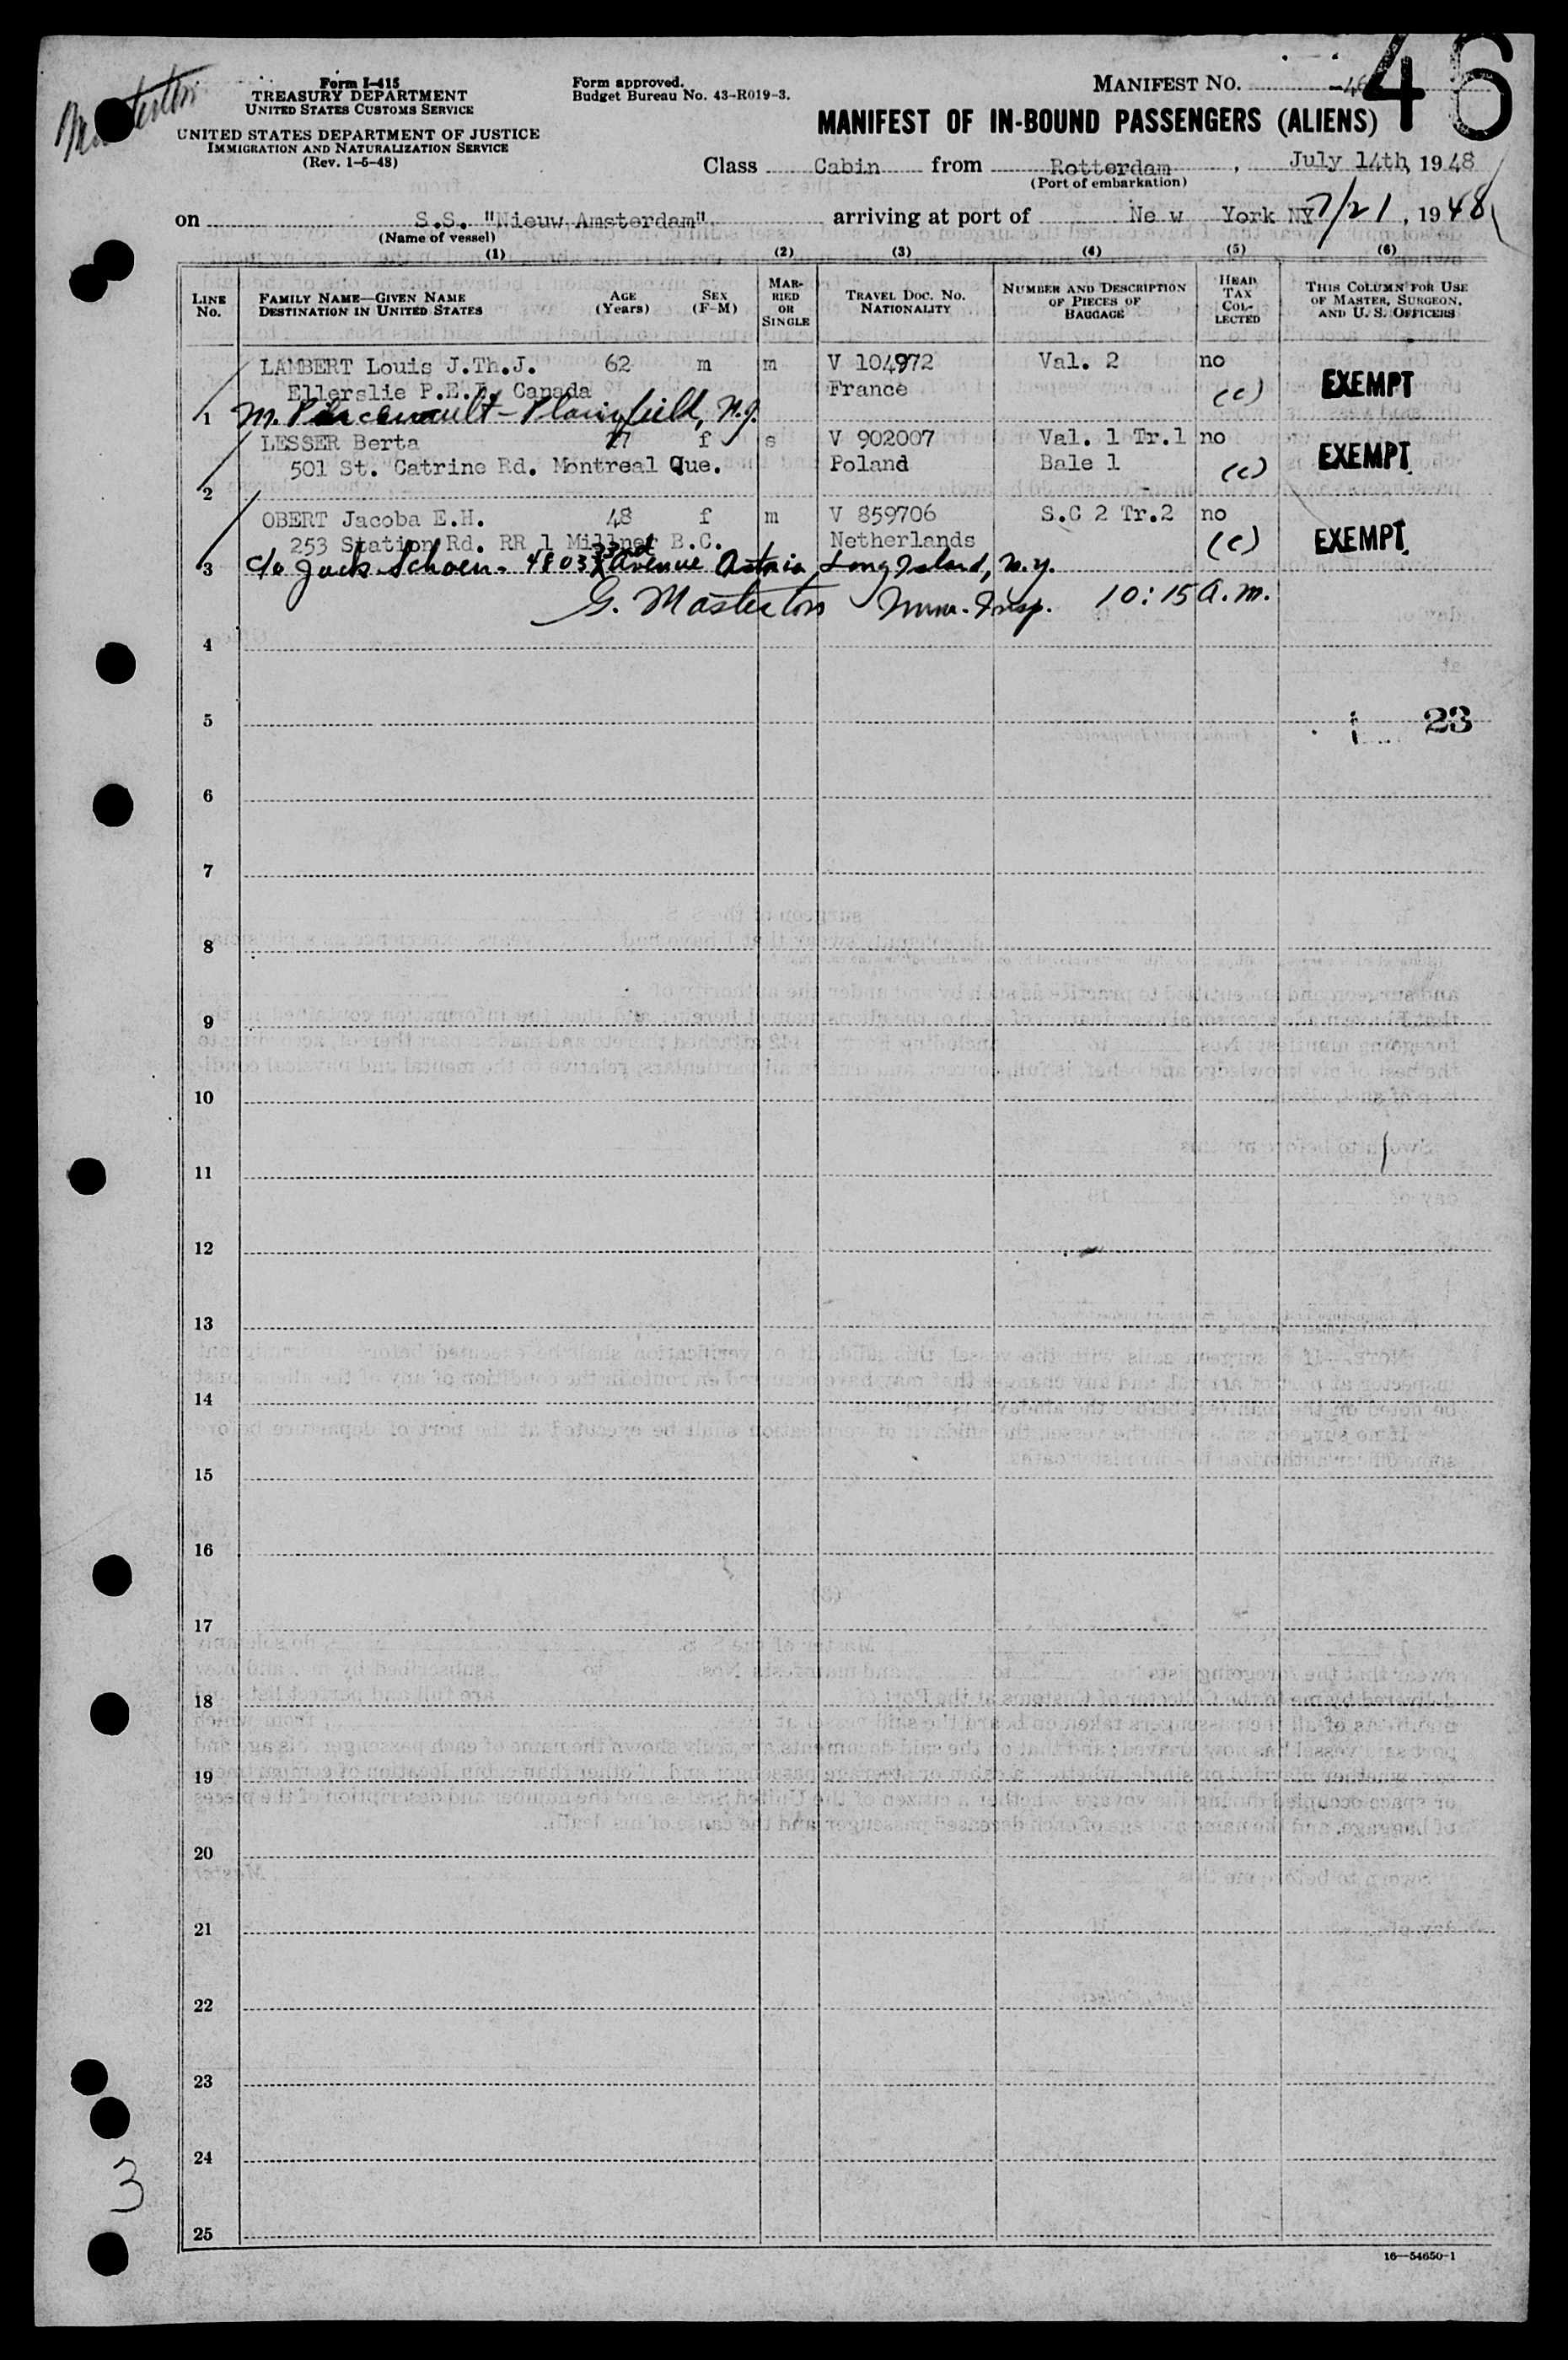 Masterton
Form I-415
TREASURY DEPARTMENT
UNITED STATES CUSTOMS SERVICE
UNITED STATES DEPARTMENT OF JUSTICE
IMMIGRATION AND NATURALIZATION SERVICE
(Rev. 1-6-48)
Form approved.
Budget Bureau No. 43-R019-3.
MANIFEST NO. 46
46
MANIFEST OF IN-BOUND PASSENGERS (ALIENS)
Class Cabin from Rotterdam, July 14th, 1948
(Port of embarkation)
on S.S. "Nieuw Amsterdam" arriving at port of New York NY 7/21, 1948
(Name of vessel)
(1) (2) (3) (4) (5) (6)
LINE No. FAMILY NAME—GIVEN NAME DESTINATION IN UNITED STATES AGE (Years) SEX (F-M) MARRIED OR SINGLE TRAVEL DOC. NO. NATIONALITY NUMBER AND DESCRIPTION OF PIECES OF BAGGAGE HEAD TAX COLLECTED THIS COLUMN FOR USE OF MASTER, SURGEON, AND U. S. OFFICERS
LAMBERT Louis J.Th.J. 62 m m V 104972 Val. 2 no
Ellerslie P.E.I. Canada France (c) EXEMPT
1 M. - Plainfield, N.J.
LESSER Berta 27 f s V 902007 Val. 1 Tr.1 no
501 St. Catrine Rd. Montreal Que. Poland Bale 1 (c) EXEMPT
2
OBERT Jacoba E.H. 48 f m V 859706 S.C 2 Tr.2 no
253 Station Rd. RR 1 Millner B.C. Netherlands (c) EXEMPT
3 c/o Jack Schoen - 4803 32nd Avenue Astoria, Long Island, N.Y.
G. Masterton Imm. Insp. 10:15 a.m.
4
5
23
6
7
8
9
10
11
12
13
14
15
16
17
18
19
20
21
22
23
24
3
25
16—54650-1